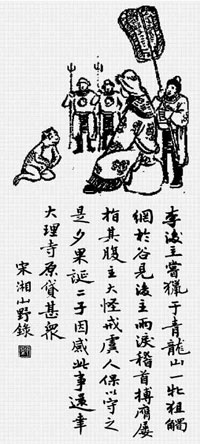 李後主嘗獵于青龍山一牝狙觸
網於谷見後主雨淚稽首搏膺屢
指其腹主大怪戒虞人保以守之
是夕果誕二子因感此事還幸
大理寺原貸甚衆
宋湘山野錄